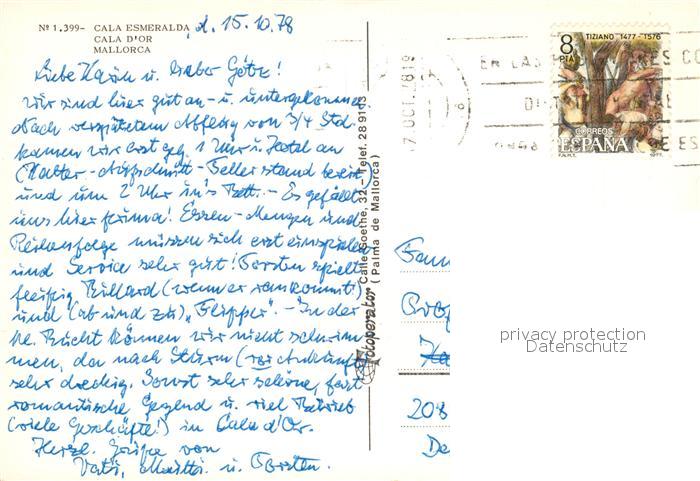 Nº 1.399- CALA ESMERALDA
CALA D'OR
MALLORCA
, d. 15.10.78
Liebe Karin u. lieber Götz!
Wir sind hier gut an- u. untergekommen
Nach verspätetem Abflug von 3/4 Std.
kamen wir erst geg. 1 Uhr u. Hotel an
(Kalter-Aufschnitt-Teller stand bereit)
und um 2 Uhr in's Bett. - Es gefällt
uns hier prima! Essen-Mengen und
Reihenfolge müssen sich erst einspielen
und Service sehr gut! Torsten spielt
fleißig Billard (wenn er rankommt)
und (ab und zu) "Flipper". - In der
kl. Bucht können wir nicht schwim-
men, da nach Sturm (vor Ankunft)
sehr dreckig. Sonst sehr schöne, fast
romantische Gegend u. viel Betrieb
(viele Geschäfte!) in Cala d'Or.
Herzl. Grüße von
Vati, Mutti u. Torsten.
Fotoperator Calle Goethe, 32 - Telef. 28 91 03
(Palma de Mallorca)
7 OCT. 78 19
EN LAS
8
PTA
TIZIANO 1477-1576
CORREOS
ESPAÑA
F.N.M.T. 1977
Fam
208
De
privacy protection
Datenschutz